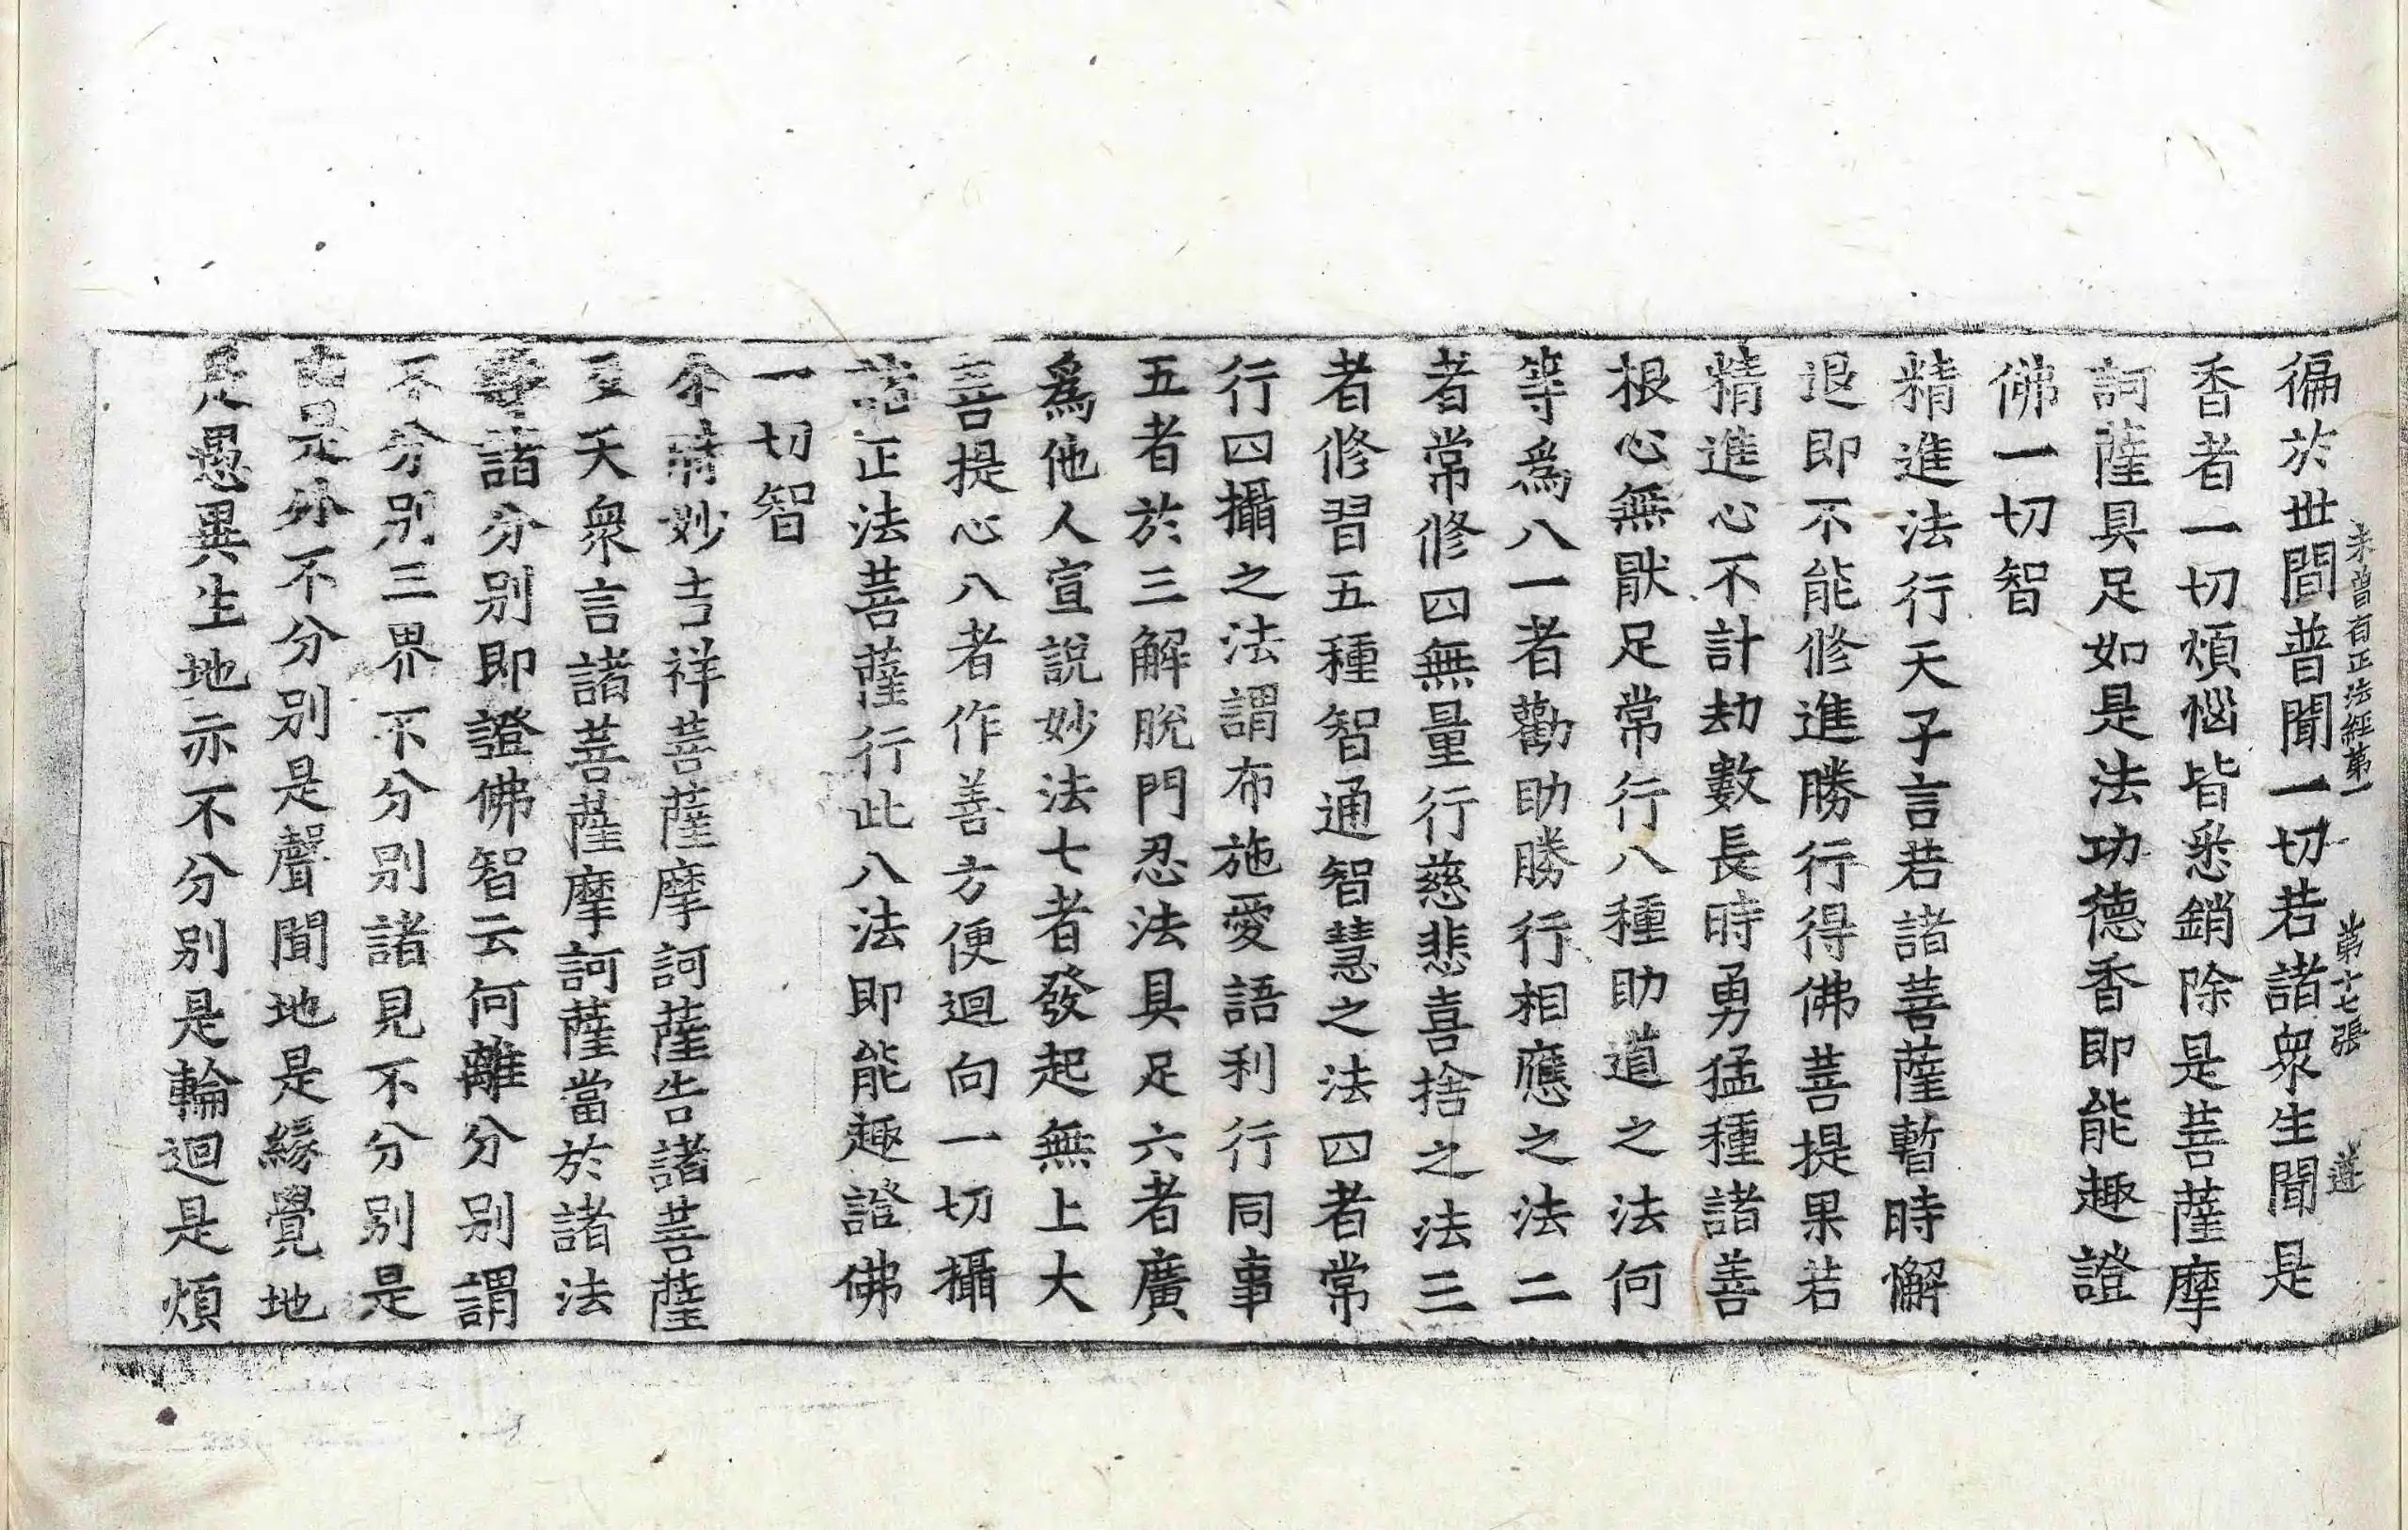 未曾有正法經第一 第十七張 遵
徧於世間普聞一切若諸衆生聞是
香者一切煩惱皆悉銷除是菩薩摩
訶薩具足如是法功德香即能趣證
佛一切智
精進法行天子言若諸菩薩暫時懈
退即不能修進勝行得佛菩提果若
精進心不計劫數長時勇猛種諸善
根心無猒足常行八種助道之法何
等爲八一者勸助勝行相應之法二
者常修四無量行慈悲喜捨之法三
者修習五種智通智慧之法四者常
行四攝之法謂布施愛語利行同事
五者於三解脫門忍法具足六者廣
爲他人宣說妙法七者發起無上大
菩提心八者作善方便迴向一切攝
諸正法菩薩行此八法即能趣證佛
一切智
尒時妙吉祥菩薩摩訶薩告諸菩薩
及天衆言諸菩薩摩訶薩當於諸法
離諸分別即證佛智云何離分別謂
不分別三界不分別諸見不分別是
內是外不分別是聲聞地是緣覺地
是愚異生地亦不分別是輪迴是煩